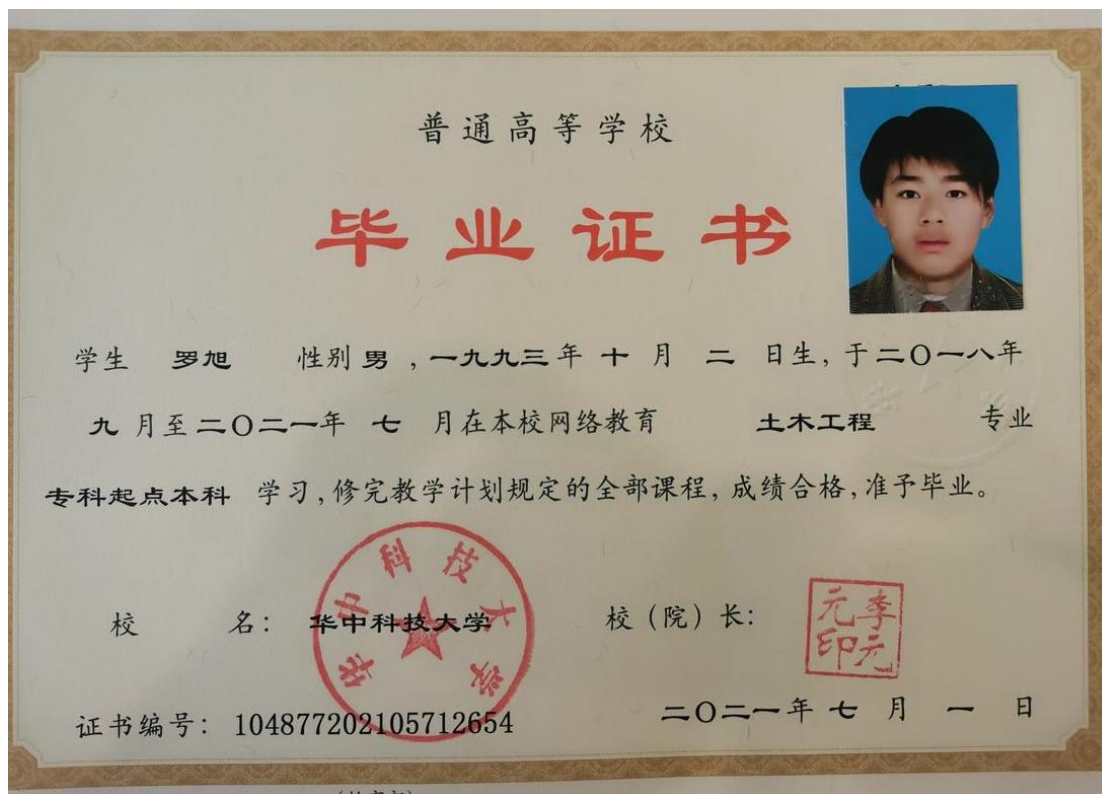 普通高等学校
毕业证书
学生 罗旭 性别男，一九九三年十月二日生，于二〇一八年
九月至二〇二一年七月在本校网络教育 土木工程 专业
专科起点本科 学习，修完教学计划规定的全部课程，成绩合格，准予毕业。
校名：华中科技大学 校（院）长：
华中科技大学
李元元印
证书编号：104877202105712654 二〇二一年七月一日